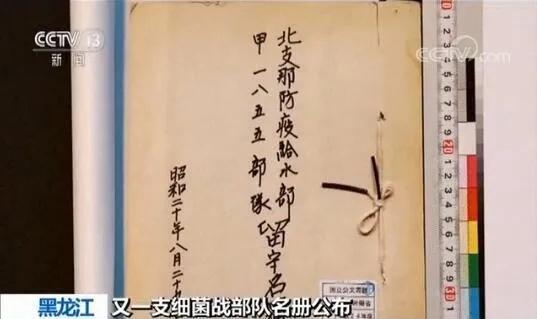 CCTV 13
新闻
CCTV.com
北支那防疫給水部
甲一八五五部隊
留守名
昭和二十年八月二十
国立公文書館
黑龙江
又一支细菌战部队名册公布